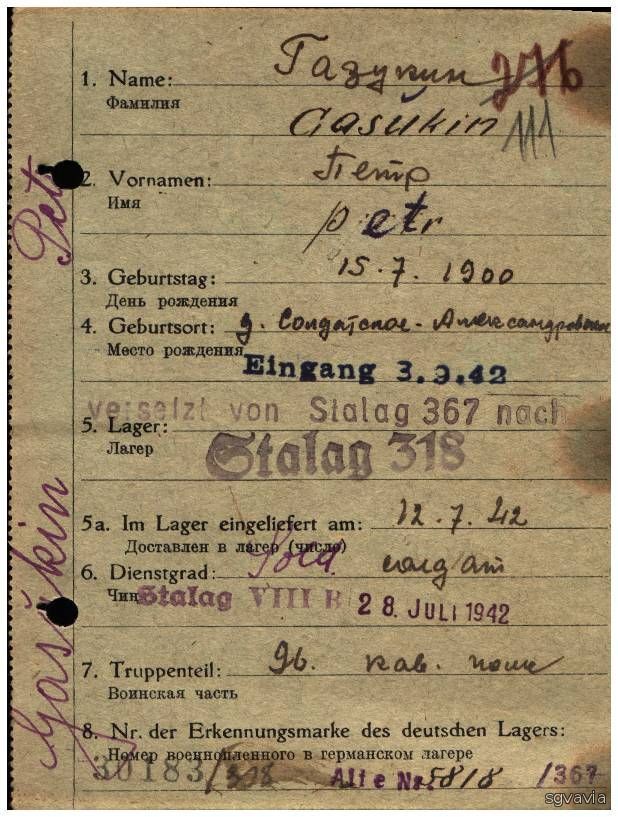 1. Name: Газукин 276
Фамилия
Gasŭkin 111
2. Vornamen: Петр
Имя
petr
3. Geburtstag: 15.7.1900
День рождения
4. Geburtsort: д. Солдатское-Александровское
Место рождения
Eingang 3.9.42
versetzt von Stalag 367 nach
5. Lager:
Лагер
Stalag 318
5a. Im Lager eingeliefert am: 12.7.42
Доставлен в лагер (число)
6. Dienstgrad: Sold. солдат
Чин
Stalag VIII B 28. JULI 1942
7. Truppenteil: 96. кав. полк
Воинская часть
8. Nr. der Erkennungsmarke des deutschen Lagers:
Номер военнопленного в германском лагере
30183/318 Alte Nr. 5818 /367
Gasŭkin Petr
sgvavia